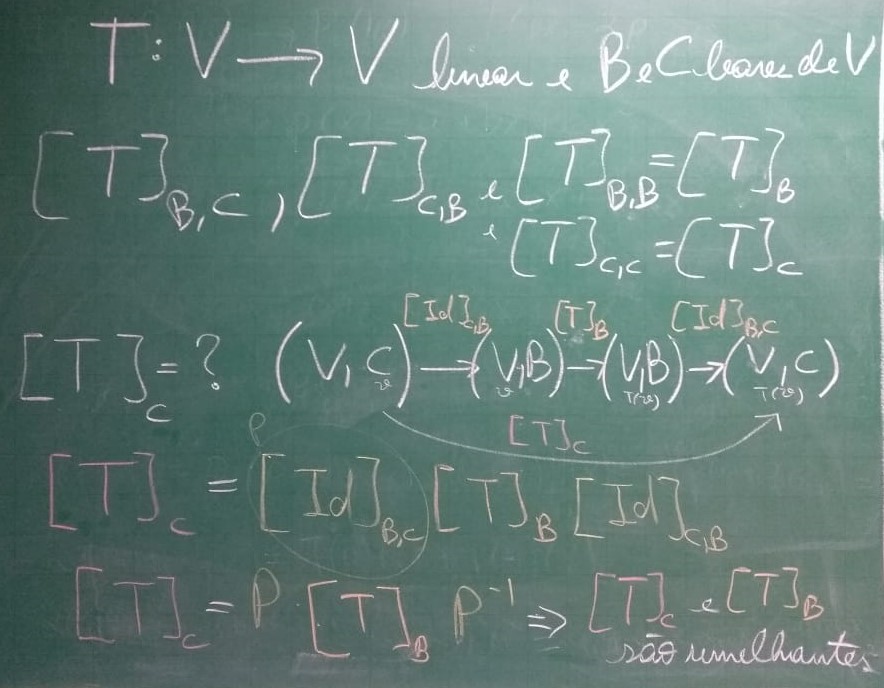 T: V → V linear e B e C bases de V
[T]_{B,C} , [T]_{C,B} e [T]_{B,B} = [T]_B
e [T]_{C,C} = [T]_C
[Id]_{C,B} [T]_B [Id]_{B,C}
[T]_C = ? (V, C) → (V,B) → (V,B) → (V,C)
v v T(v) T(v)
[T]_C
P
[T]_C = [Id]_{B,C} [T]_B [Id]_{C,B}
[T]_C = P · [T]_B P^{-1} ⇒ [T]_C e [T]_B
são semelhantes